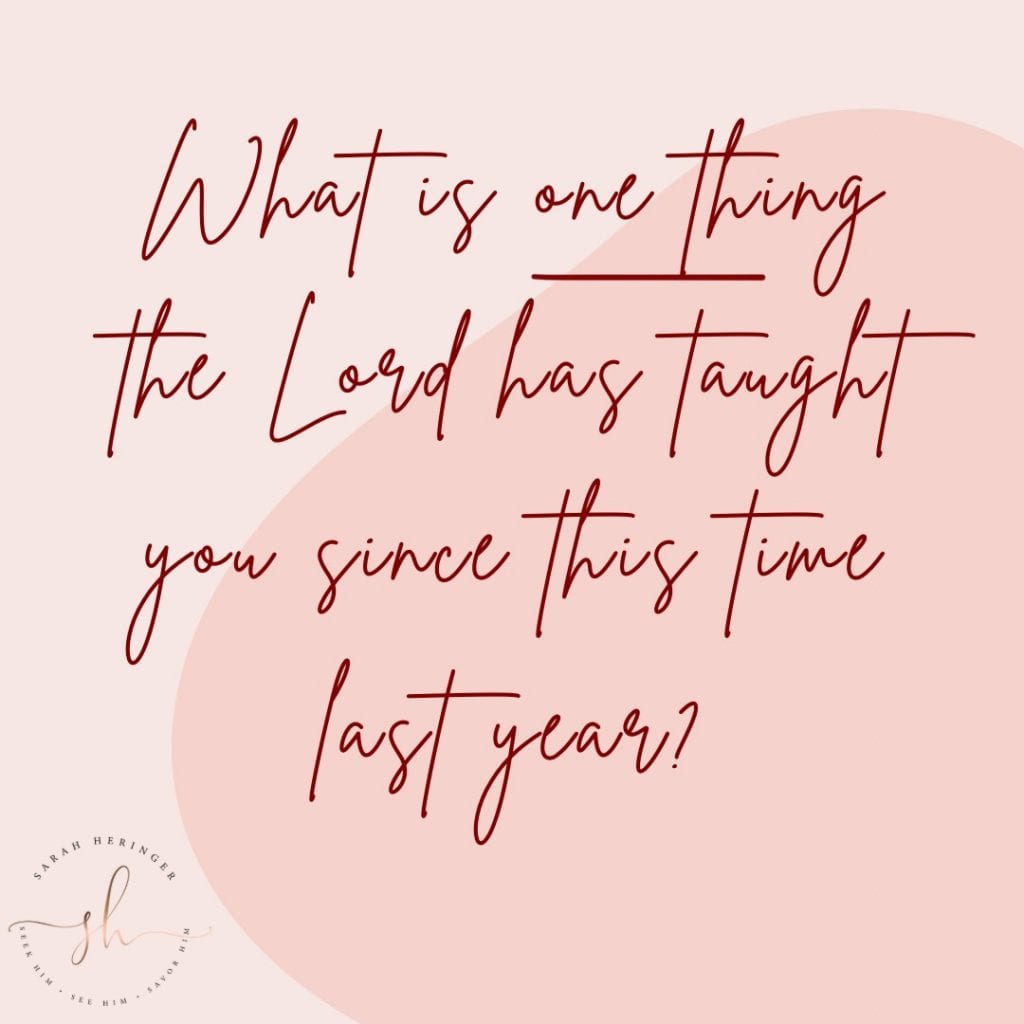 What is one thing
the Lord has taught
you since this time
last year?
SARAH HERINGER
sh
SEEK HIM • SEE HIM • SAVOR HIM